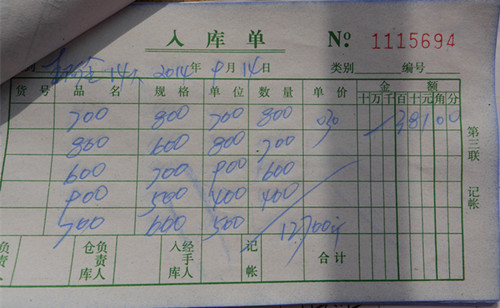 入库单 № 1115694
14人 2014年 9月14日 类别 编号
货号 品名 规格 单位 数量 单价 金额
十万千百十元角分
700 800 700 800 38100
800 600 800 700
600 700 800 600
500 400 400
600 500 12700
负责人 仓库负责人 入库经手人 记帐 合计
第三联 记帐